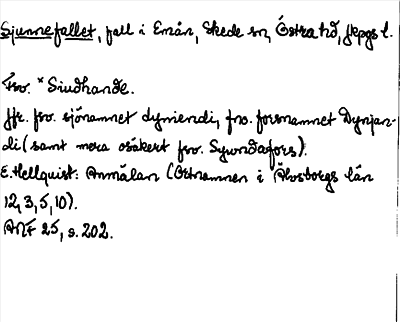 Sjunnefallet, fall i Emån, Skede sn, Östra hd, Jkpgs l.
Fsv. *Siudhande.
Jfr. fsv. sjönamnet dyniendi, fno. forsnamnet Dynjan-
di (samt mera osäkert fsv. Sywndafors).
E. Hellquist: Anmälan (Ortnamnen i Älvsborgs län
12, 3, 5, 10).
ANF 25, s. 202.